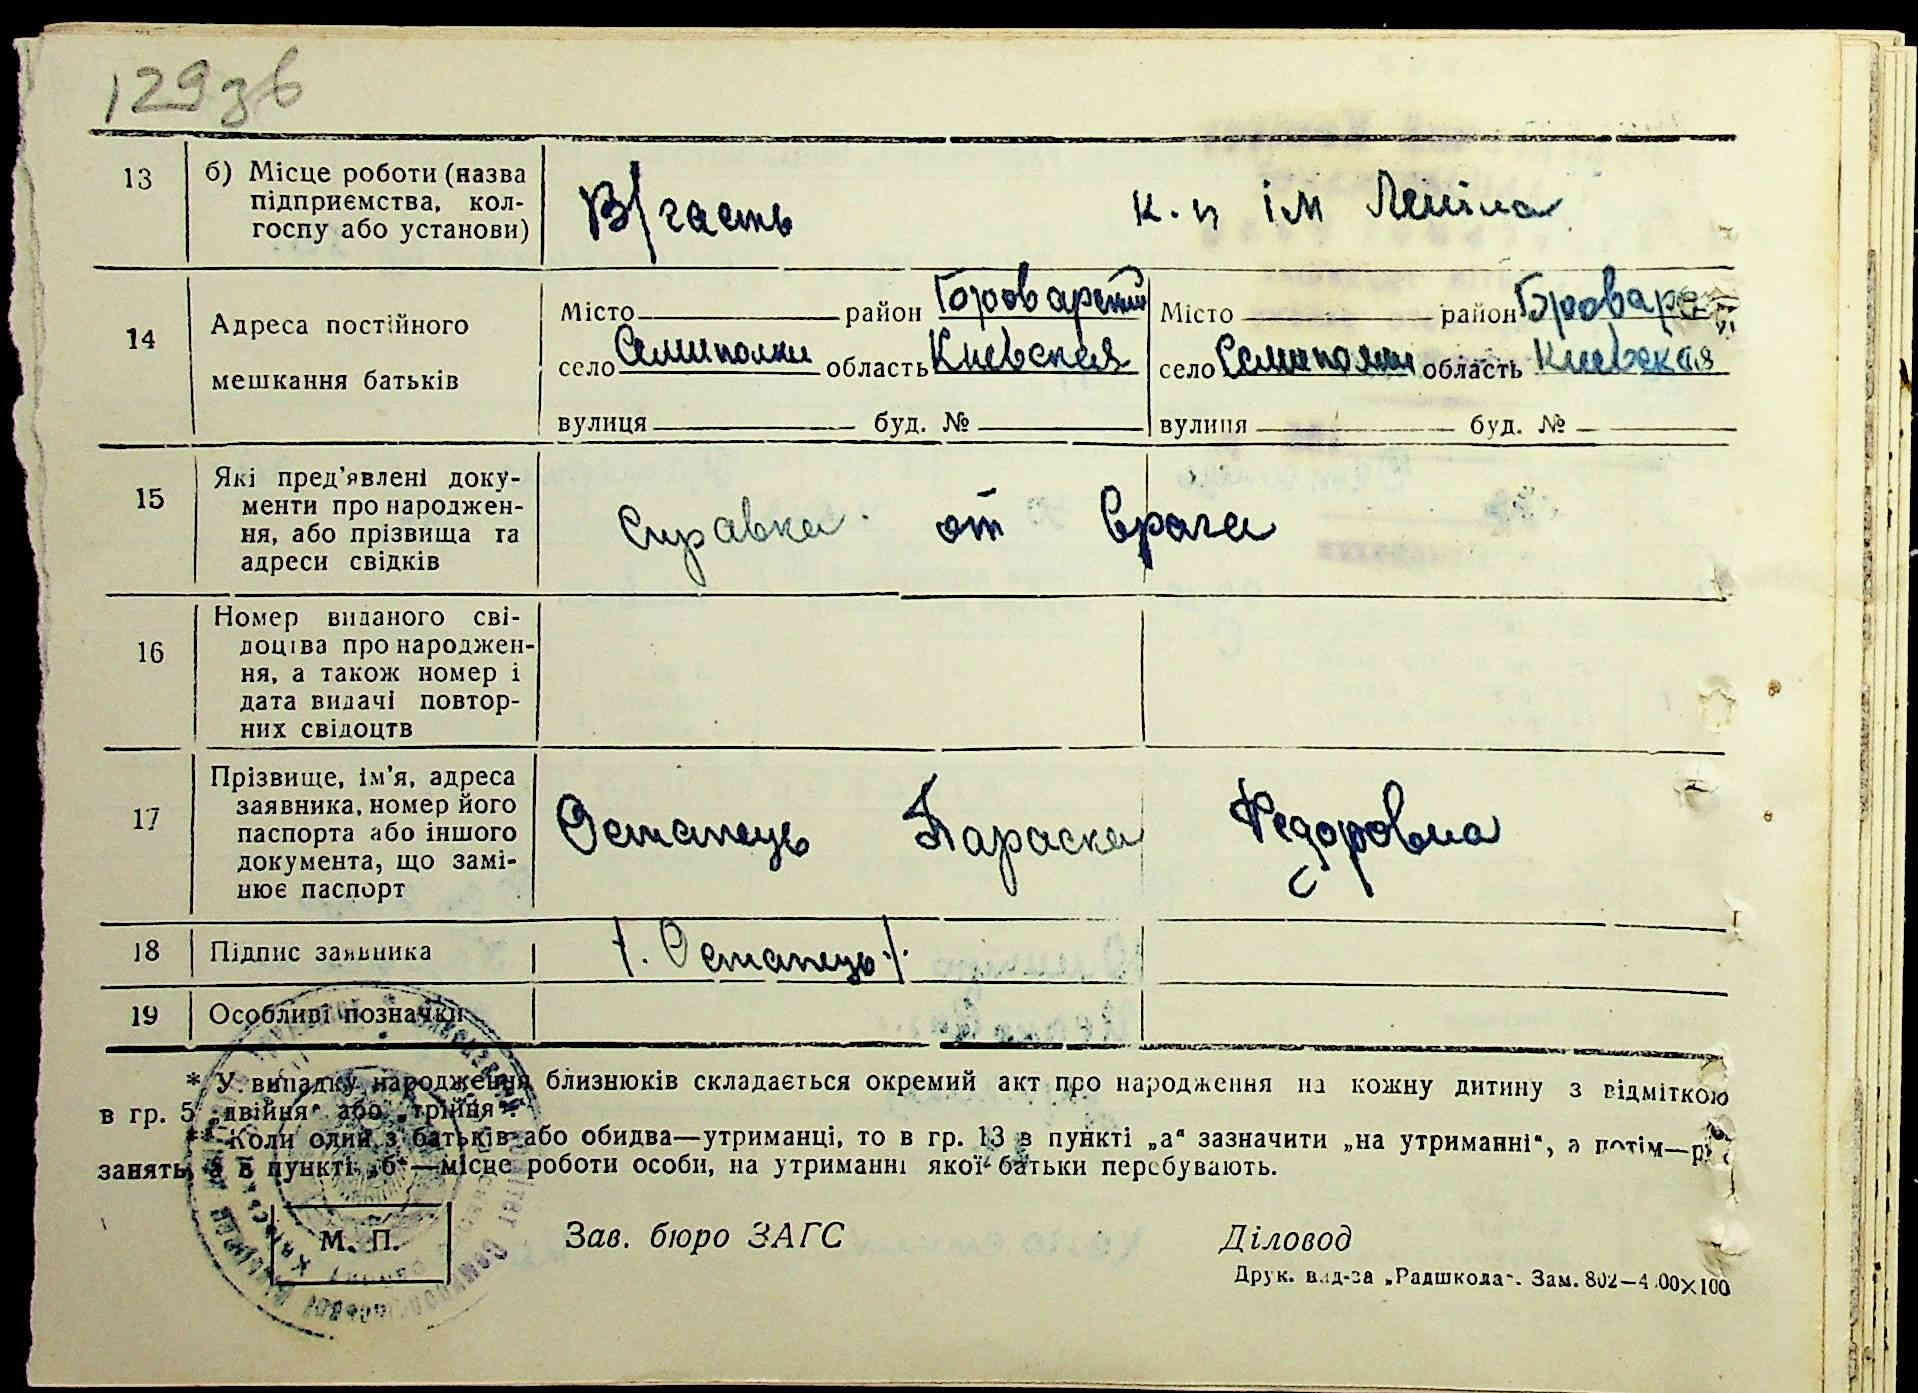 129 зв
13
б) Місце роботи (назва
підприємства, кол-
госпу або установи)
В/часть
к. п ім Леніна
14
Адреса постійного
мешкання батьків
Місто район Броварский
село Семиполки область Киевская
вулиця буд. №
Місто район Броварс
село Семиполки область Киевская
вулиця буд. №
15
Які пред'явлені доку-
менти про народжен-
ня, або прізвища та
адреси свідків
Справка от врача
16
Номер виданого сві-
доцтва про народжен-
ня, а також номер і
дата видачі повтор-
них свідоцтв
17
Прізвище, ім'я, адреса
заявника, номер його
паспорта або іншого
документа, що замі-
нює паспорт
Остапець Параска Федоровна
18
Підпис заявника
/. Остапець ./.
19
Особливі позначки
* У випадку народження близнюків складається окремий акт про народження на кожну дитину з відміткою
в гр. 5 „двійня" або „трійня".
** Коли один з батьків або обидва—утриманці, то в гр. 13 в пункті „а" зазначити „на утриманні", а потім—рід
занять, а в пункті „б"—місце роботи особи, на утриманні якої батьки перебувають.
М. П.
Зав. бюро ЗАГС
Діловод
Друк. вид-ва „Радшкола". Зам. 802—4 00×100